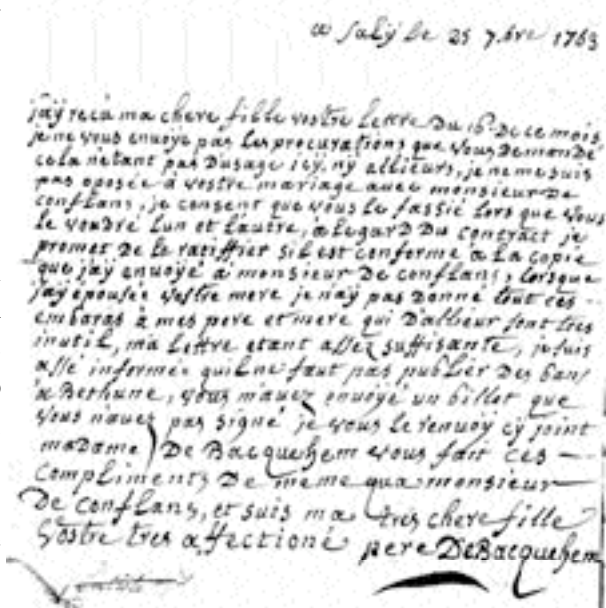 a Saly le 25 7.bre 1763
j'aÿ recu ma chere fille vostre lettre Du 16 De ce mois,
je ne vous envoÿe pas les procurations que vous Demandé
cela netant pas Dusage icÿ, nÿ allieurs, je ne me suis
pas oposée à vostre mariage avec monsieur De
conflans, je consent que vous le fassié lors que vous
le voudré lun et lautre, a legard Du contract je
promet De le ratiffier sil est conforme a la copie
que j'aÿ envoÿé a monsieur De conflans, lorsque
j'aÿ épousée vostre mere je n'aÿ pas Donné tout ces
embaras à mes pere et mere qui D'allieur sont tres
inutil, ma lettre etant assez suffisante, je suis
assé informée quil ne faut pas publier Des bans
a Bethune, vous m'avez envoÿé un billet que
vous n'avez pas signé je vous le renvoÿ cÿ joint
madame De Bacquehem vous fait ces
compliments De meme qua monsieur
De conflans, et suis ma tres chere fille
vostre tres affectioné pere DeBacquehem